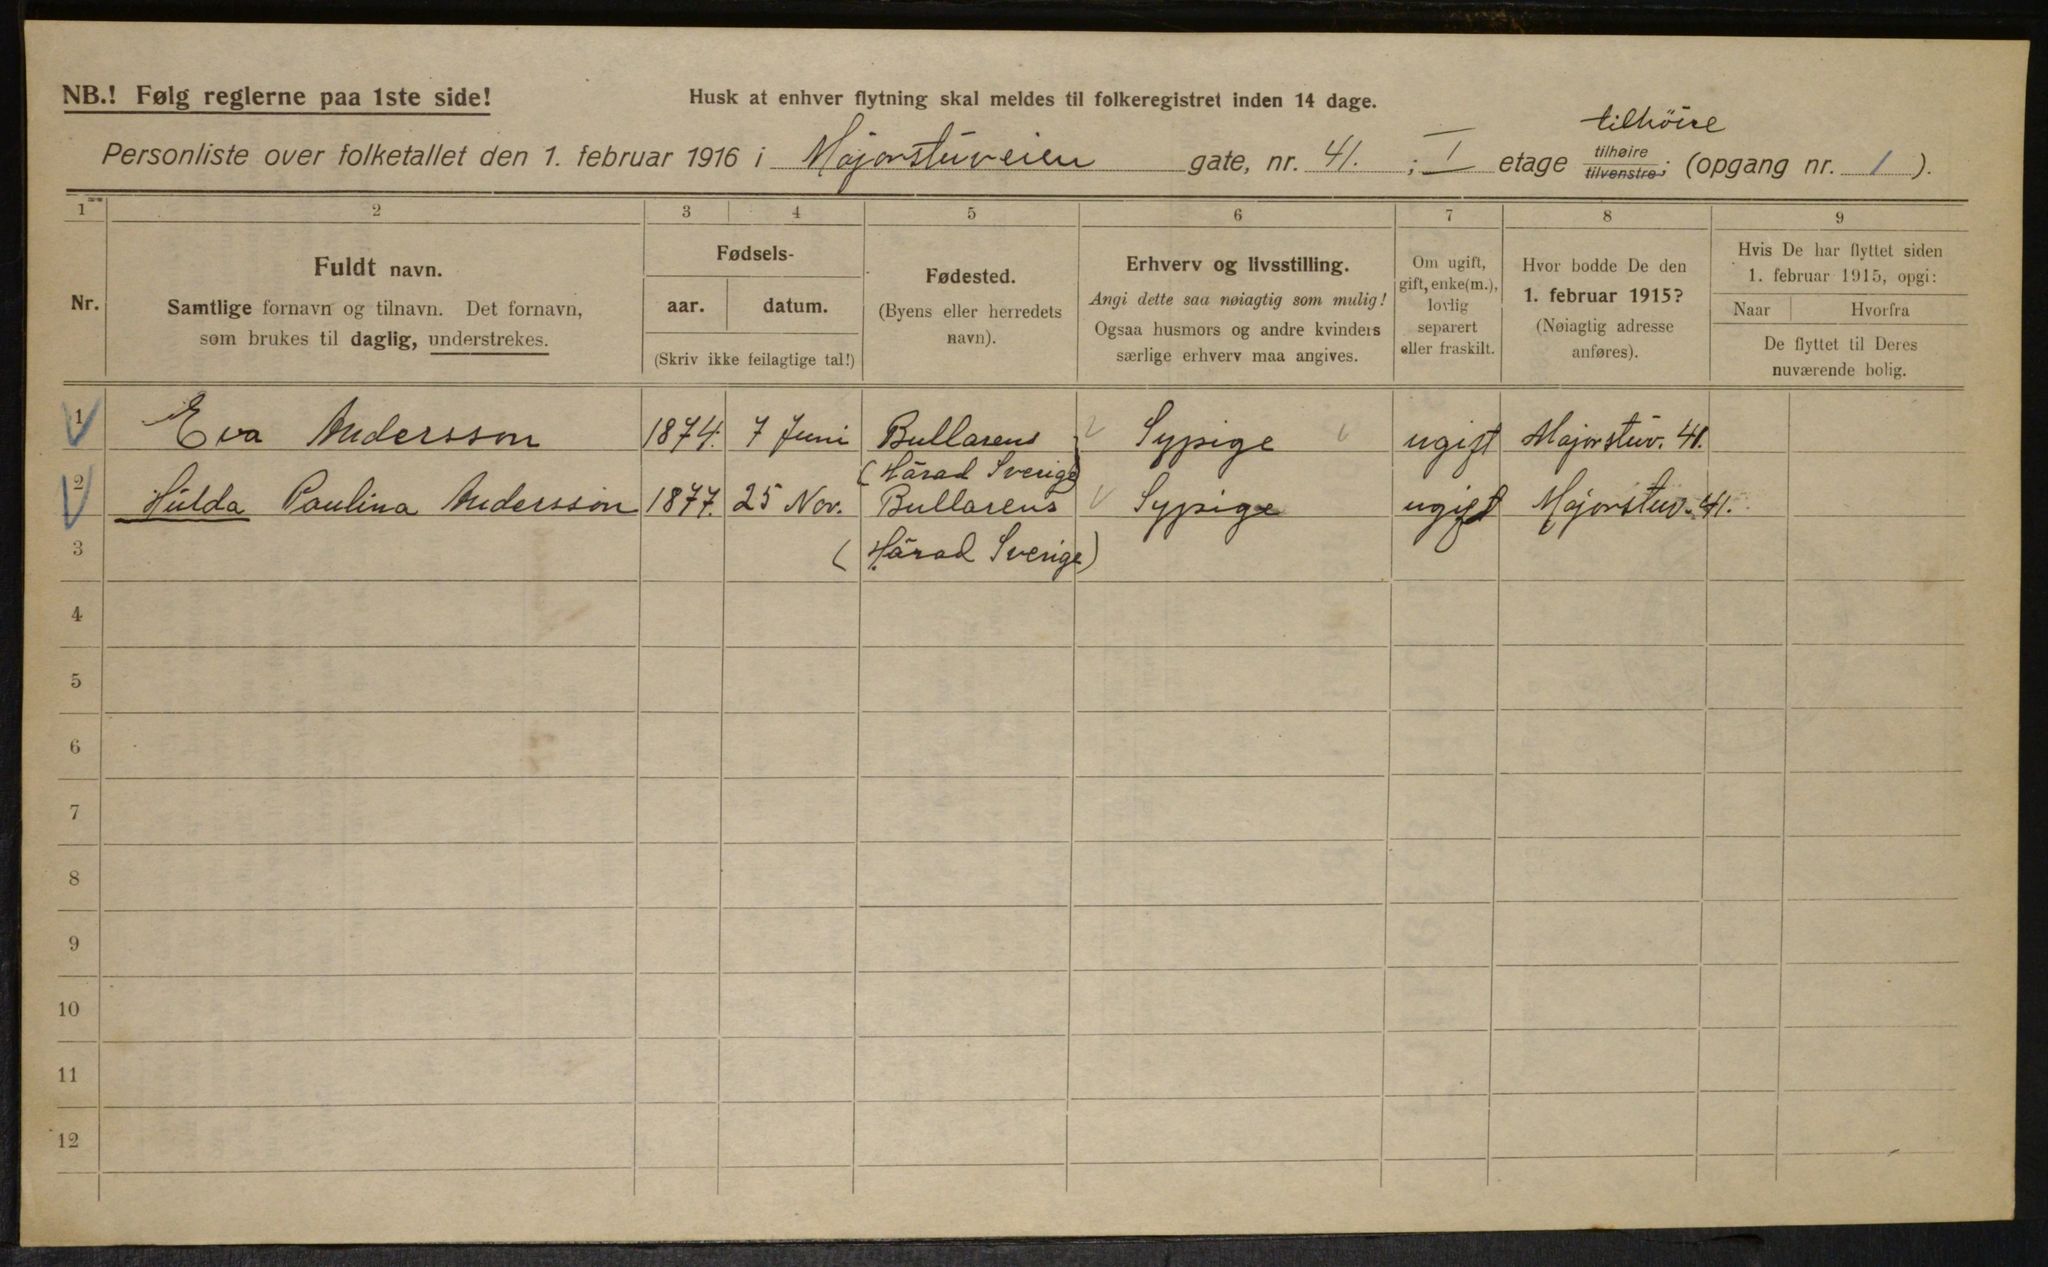 NB.! Følg reglerne paa 1ste side!
Husk at enhver flytning skal meldes til folkeregistret inden 14 dage.
tilhöire
Personliste over folketallet den 1. februar 1916 i Majorstuveien gate, nr. 41. ; I etage tilhøire tilvenstre; (opgang nr. 1).
1 2 3 4 5 6 7 8 9
Nr.
Fuldt navn.
Samtlige fornavn og tilnavn. Det fornavn,
som brukes til daglig, understrekes.
Fødsels-
aar. datum.
(Skriv ikke feilagtige tal!)
Fødested.
(Byens eller herredets
navn).
Erhverv og livsstilling.
Angi dette saa nøiagtig som mulig!
Ogsaa husmors og andre kvinders
særlige erhverv maa angives.
Om ugift,
gift, enke(m.),
lovlig
separert
eller fraskilt.
Hvor bodde De den
1. februar 1915?
(Nøiagtig adresse
anføres).
Hvis De har flyttet siden
1. februar 1915, opgi:
Naar Hvorfra
De flyttet til Deres
nuværende bolig.
1 Eva Andersson 1874. 7 Juni Bullarens Sypige ugift Majorstuv. 41.
(Härad Sverige)
2 Hulda Paulina Andersson 1877. 25 Nov. Bullarens Sypige ugift Majorstuv. 41.
3 (Härad Sverige)
4
5
6
7
8
9
10
11
12